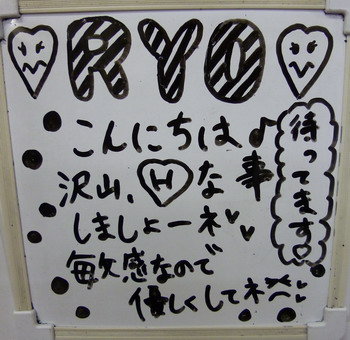 RYO
こんにちは♪
沢山、Hな事
しましょーネ♥♥
敏感なので
優しくしてネ♥
待ってます♡